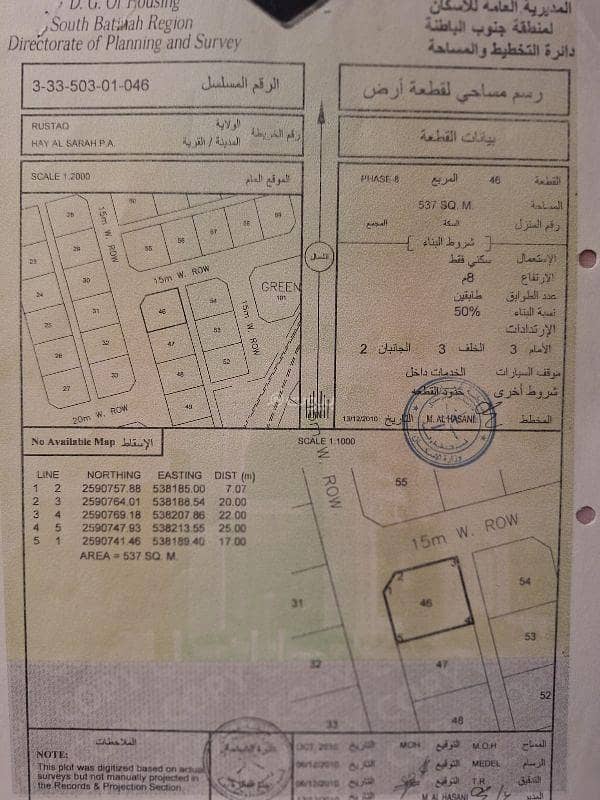 D. G. Of Housing
المديرية العامة للأسكان
South Batinah Region
لمنطقة جنوب الباطنة
Directorate of Planning and Survey
دائرة التخطيط والمساحة
3-33-503-01-046 الرقم المسلسل
رسم مساحي لقطعة أرض
RUSTAQ الولاية
HAY AL SARAH P.A. المدينة / القرية
رقم الخريطة
بيانات القطعة
SCALE 1:2000 الموقع العام
القطعة 46 المربع PHASE-8
المساحة 537 SQ. M.
رقم المنزل السكة المجمع
شروط البناء
الإستعمال سكني فقط
الإرتفاع 8م
عدد الطوابق طابقين
نسبة البناء 50%
الإرتدادات
الأمام 3 الخلف 3 الجانبان 2
موقف السيارات الخدمات داخل
شروط أخرى حدود القطعة
المخطط M. AL HASANI التاريخ 13/12/2010
الشمال
15m W. ROW
15m W. ROW
15m W. ROW
20m W. ROW
GREEN
101
60
59
58
57
56
55
54
53
52
46
47
48
49
23
24
33
26
27
28
29
30
31
32
No Available Map الإسقاط
SCALE 1:1000
LINE NORTHING EASTING DIST (m)
1 2 2590757.88 538185.00 7.07
2 3 2590764.01 538188.54 20.00
3 4 2590769.18 538207.86 22.00
4 5 2590747.93 538213.55 25.00
5 1 2590741.46 538189.40 17.00
AREA = 537 SQ. M.
W. ROW
15m W. ROW
55
54
53
52
46
47
48
31
32
33
1
2
3
4
5
الملاحظات
NOTE:
This plot was digitized based on actual
surveys but not manually projected in
the Records & Projection Section.
المساح M.O.H التوقيع MOH التاريخ OCT, 2010
الرسام MEDEL التوقيع التاريخ 06/12/2010
التدقيق T.R التوقيع التاريخ 06/12/2010
المدير M. AL HASANI التوقيع التاريخ